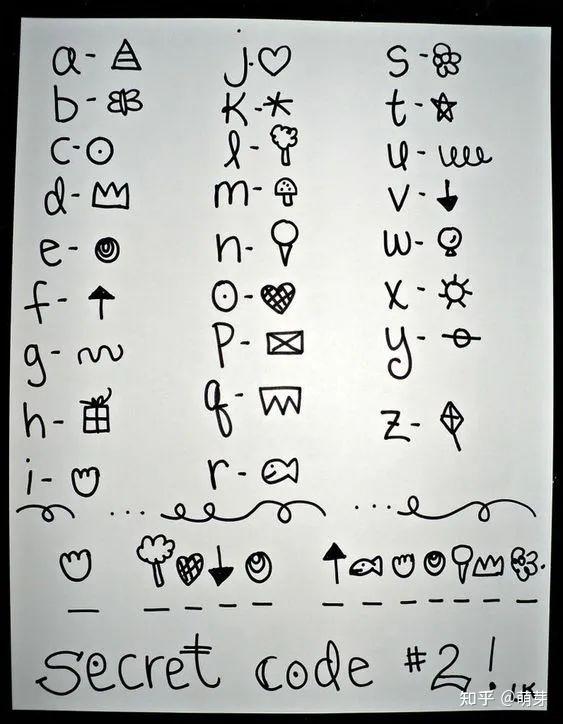 a- j- s-
b- k- t-
c- l- u-
d- m- v-
e- n- w-
f- o- x-
g- p- y-
h- q- z-
i- r-
...
...
Secret code #2!
知乎 @萌芽